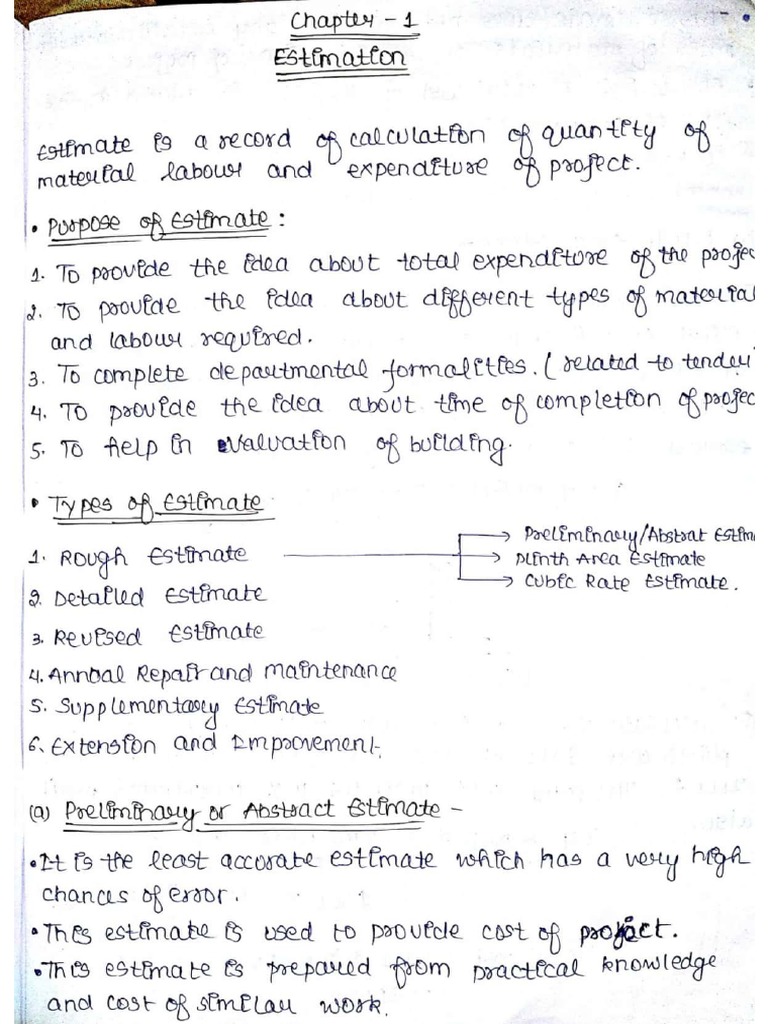 Chapter - 1
Estimation
Estimate is a record of calculation of quantity of
material labour and expenditure of project.
• Purpose of Estimate :
1. To provide the idea about total expenditure of the projec
2. To provide the idea about different types of material
and labour required.
3. To complete departmental formalities. ( related to tender
4. To provide the idea about time of completion of projec
5. To help in evaluation of building.
• Types of Estimate
1. Rough Estimate
→ Preliminary/Abstrat Estim
→ Plinth Area Estimate
→ Cubic Rate Estimate.
2. Detailed Estimate
3. Revised Estimate
4. Annual Repair and maintenance
5. Supplementary Estimate
6. Extension and Improvement
(a) Preliminary or Abstract Estimate -
• It is the least accurate estimate which has a very high
chances of error.
• This estimate is used to provide cost of project.
• This estimate is prepared from practical knowledge
and cost of similar work.